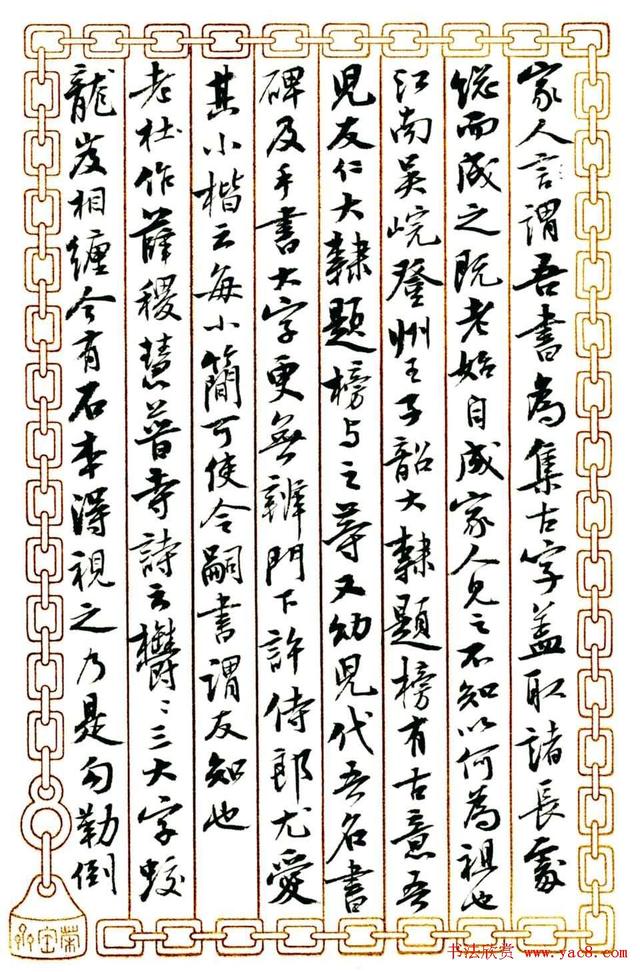 家人言謂吾書為集古字盖取諸長處
総而成之既老始自成家人見之不知以何為祖也
江南吳皖登州王子韶大隸題榜有古意吾
兒友仁大隸題榜与之等又幼兒代吾名書
碑及手書大字更無辨門下許侍郎尤愛
其小楷云每小簡可使令嗣書謂友知也
老杜作薛稷慧普寺詩云欝〻三大字蛟
龍岌相纏今有石本得視之乃是勾勒倒
榮宝斋
书法欣赏 www.yac8.com